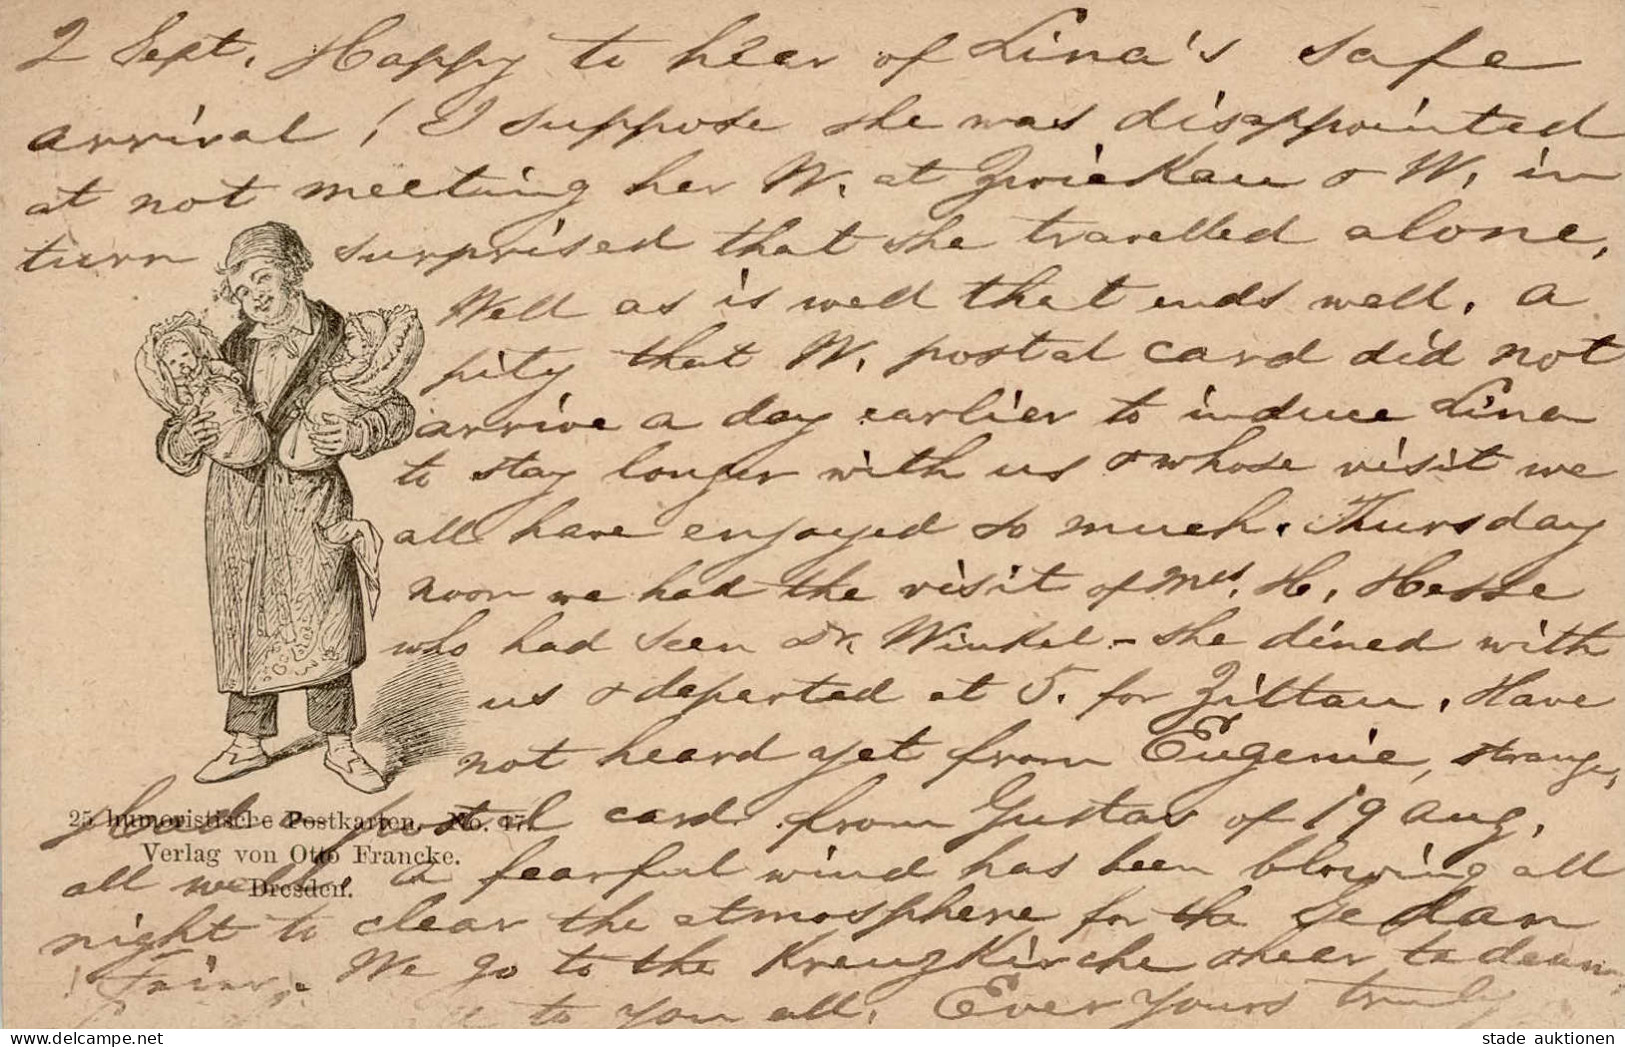 2 Sept. Happy to hear of Lina's safe
arrival! I suppose she was disappointed
at not meeting her W. at Zwickau & W. in
turn surprised that she travelled alone.
Well as is well that ends well. a
pity that W. postal card did not
arrive a day earlier to induce Lina
to stay longer with us & whose visit we
all have enjoyed so much. Thursday
noon we had the visit of Mrs. H. Hesse
who had seen Dr. Winkel - she dined with
us & departed at 5. for Zittau. Have
not heard yet from Eugenie, strange,
had a postal card from Gustav of 19 Aug.
25 humoristische Postkarten. No. 17.
Verlag von Otto Francke.
Dresden.
all well. A fearful wind has been blowing all
night to clear the atmosphere for the Sedan
Feier. We go to the Kreuzkirche & hear te deum
to you all. Ever yours truly
stade auktionen